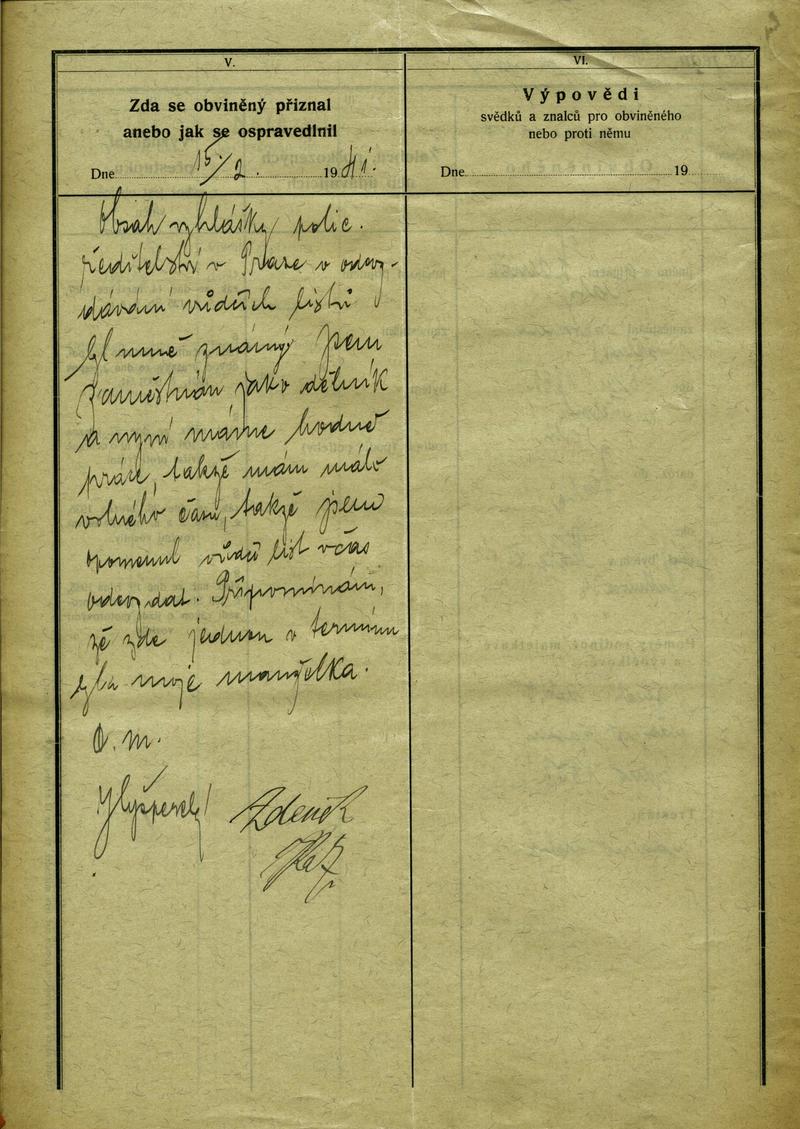 V.
Zda se obviněný přiznal
anebo jak se ospravedlnil
Dne 15/2. 1941.
VI.
Výpovědi
svědků a znalců pro obviněného
nebo proti němu
Dne 19
Obsah vyhlášky polic.
ředitelství v Praze o odevz-
dávání vůdčích listů
byl mně známý. Jsem
zaměstnán jako dělník
a nyní máme hodně
práce, takže mám málo
volného času, takže jsem
opomenul vůdčí list včas
odevzdat. Připomínám,
že zde jednou v termínu
byla moje manželka.
D. m.
Zdeněk